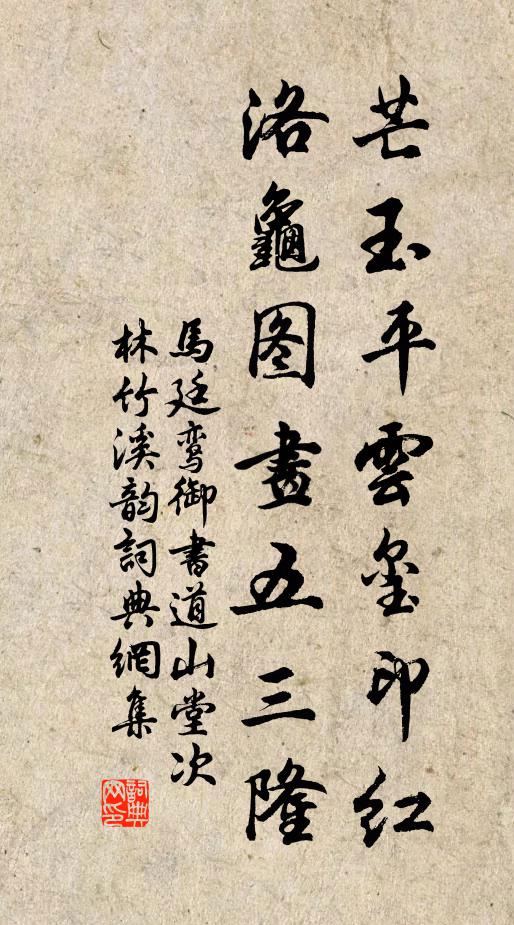 芒玉平雲玺印红
洛龜图畫五三隆
馬廷鸾御書道山堂次
林竹溪韵詞典網集
詞典网印